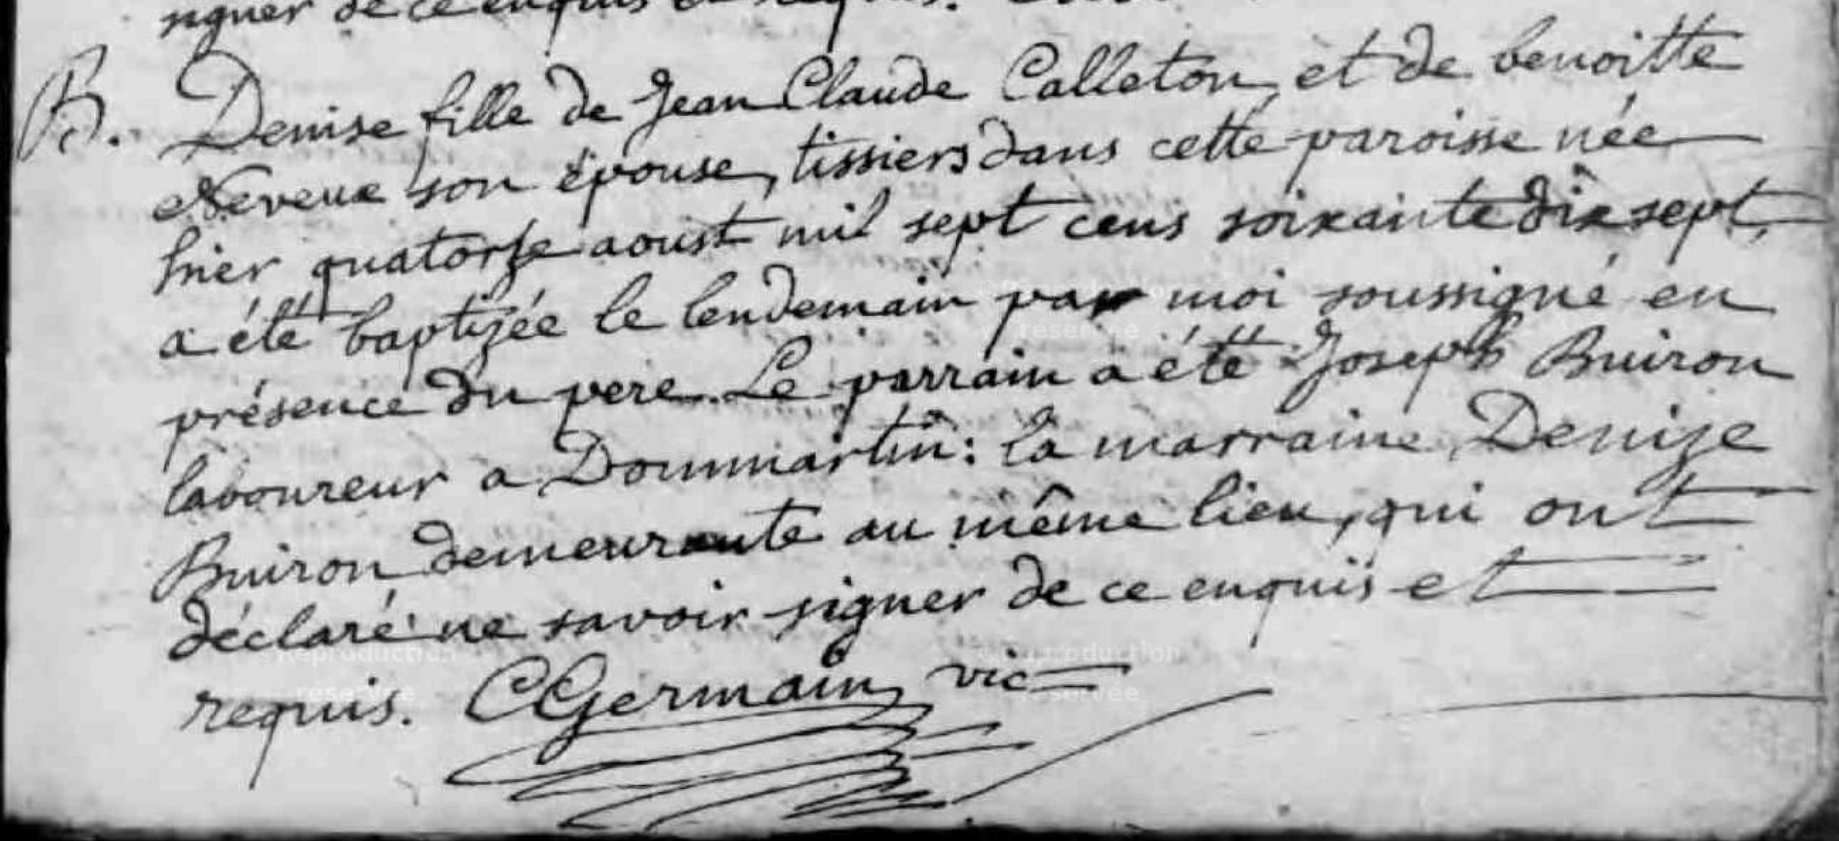 signer de ce enquis et requis.
B. Denise fille de Jean Claude Calleton et de benoitte
Neveux son épouse, tissiers dans cette paroisse née
hier quatorze aoust mil sept cens soixante dix sept,
a été baptizée le lendemain par moi soussigné en
présence du pere. Le parrain a été Joseph Buiron
laboureur a Dommartin: la marraine Denize
Buiron demeurante au même lieu, qui ont
déclaré ne savoir signer de ce enquis et
requis. CGermain vic